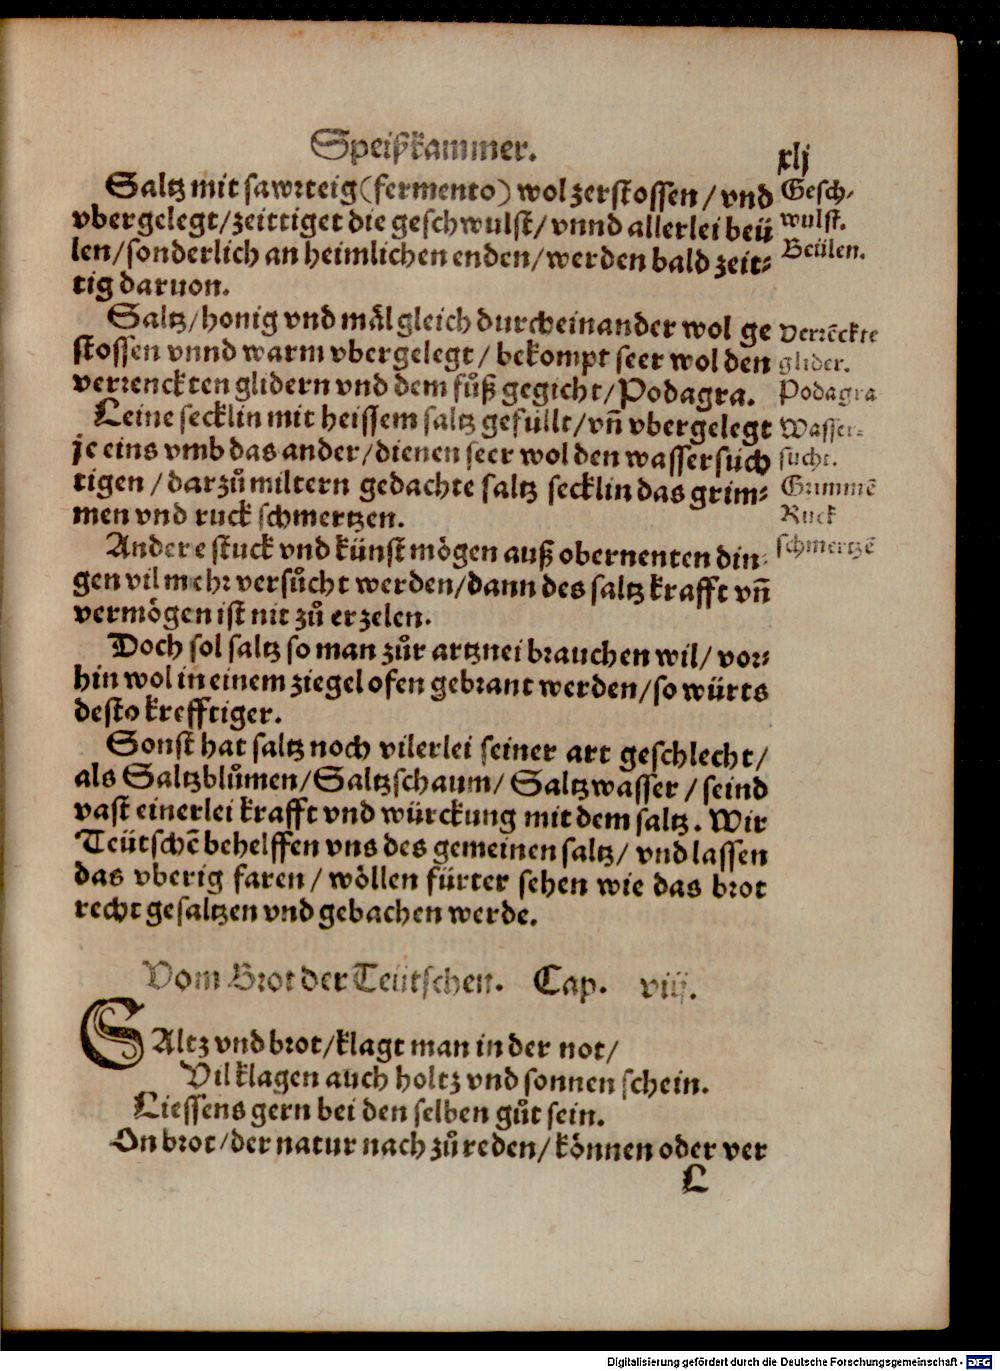 Speißkammer.
xlj
Saltz mit sawrteig (fermento) wol zerstossen / vnd
vbergelegt / zeittiget die geschwulst / vnnd allerlei beü
len / sonderlich an heimlichen enden / werden bald zeit⸗
tig daruon.
Gesch⸗
wulst.
Beülen.
Saltz / honig vnd mäl gleich durcheinander wol ge
stossen vnnd warm vbergelegt / bekompt seer wol den
verrenckten glidern vnd dem fůß gegicht / Podagra.
Verrēckte
glider.
Podagra
Leine secklin mit heissem saltz gefüllt / vñ vbergelegt
je eins vmb das ander / dienen seer wol den wassersüch
tigen / darzů miltern gedachte saltz secklin das grim⸗
men vnd ruck schmertzen.
Wasser⸗
sucht.
Grimmē
Ruck
schmertzē
Andere stuck vnd künst mögen auß obernenten din⸗
gen vil mehr versůcht werden / dann des saltz krafft vñ
vermögen ist nit zů erzelen.
Doch sol saltz so man zůr artznei brauchen wil / vor⸗
hin wol in einem ziegel ofen gebrant werden / so würts
desto krefftiger.
Sonst hat saltz noch vilerlei seiner art geschlecht /
als Saltzblůmen / Saltzschaum / Saltzwasser / seind
vast einerlei krafft vnd würckung mit dem saltz. Wir
Teütschē behelffen vns des gemeinen saltz / vnd lassen
das vberig faren / wöllen fürter sehen wie das brot
recht gesaltzen vnd gebachen werde.
Vom Brot der Teütschen. Cap. viij.
SAltz vnd brot / klagt man in der not /
Vil klagen auch holtz vnd sonnen schein.
Liessens gern bei den selben gůt sein.
On brot / der natur nach zů reden / können oder ver
L
Digitalisierung gefördert durch die Deutsche Forschungsgemeinschaft - DFG